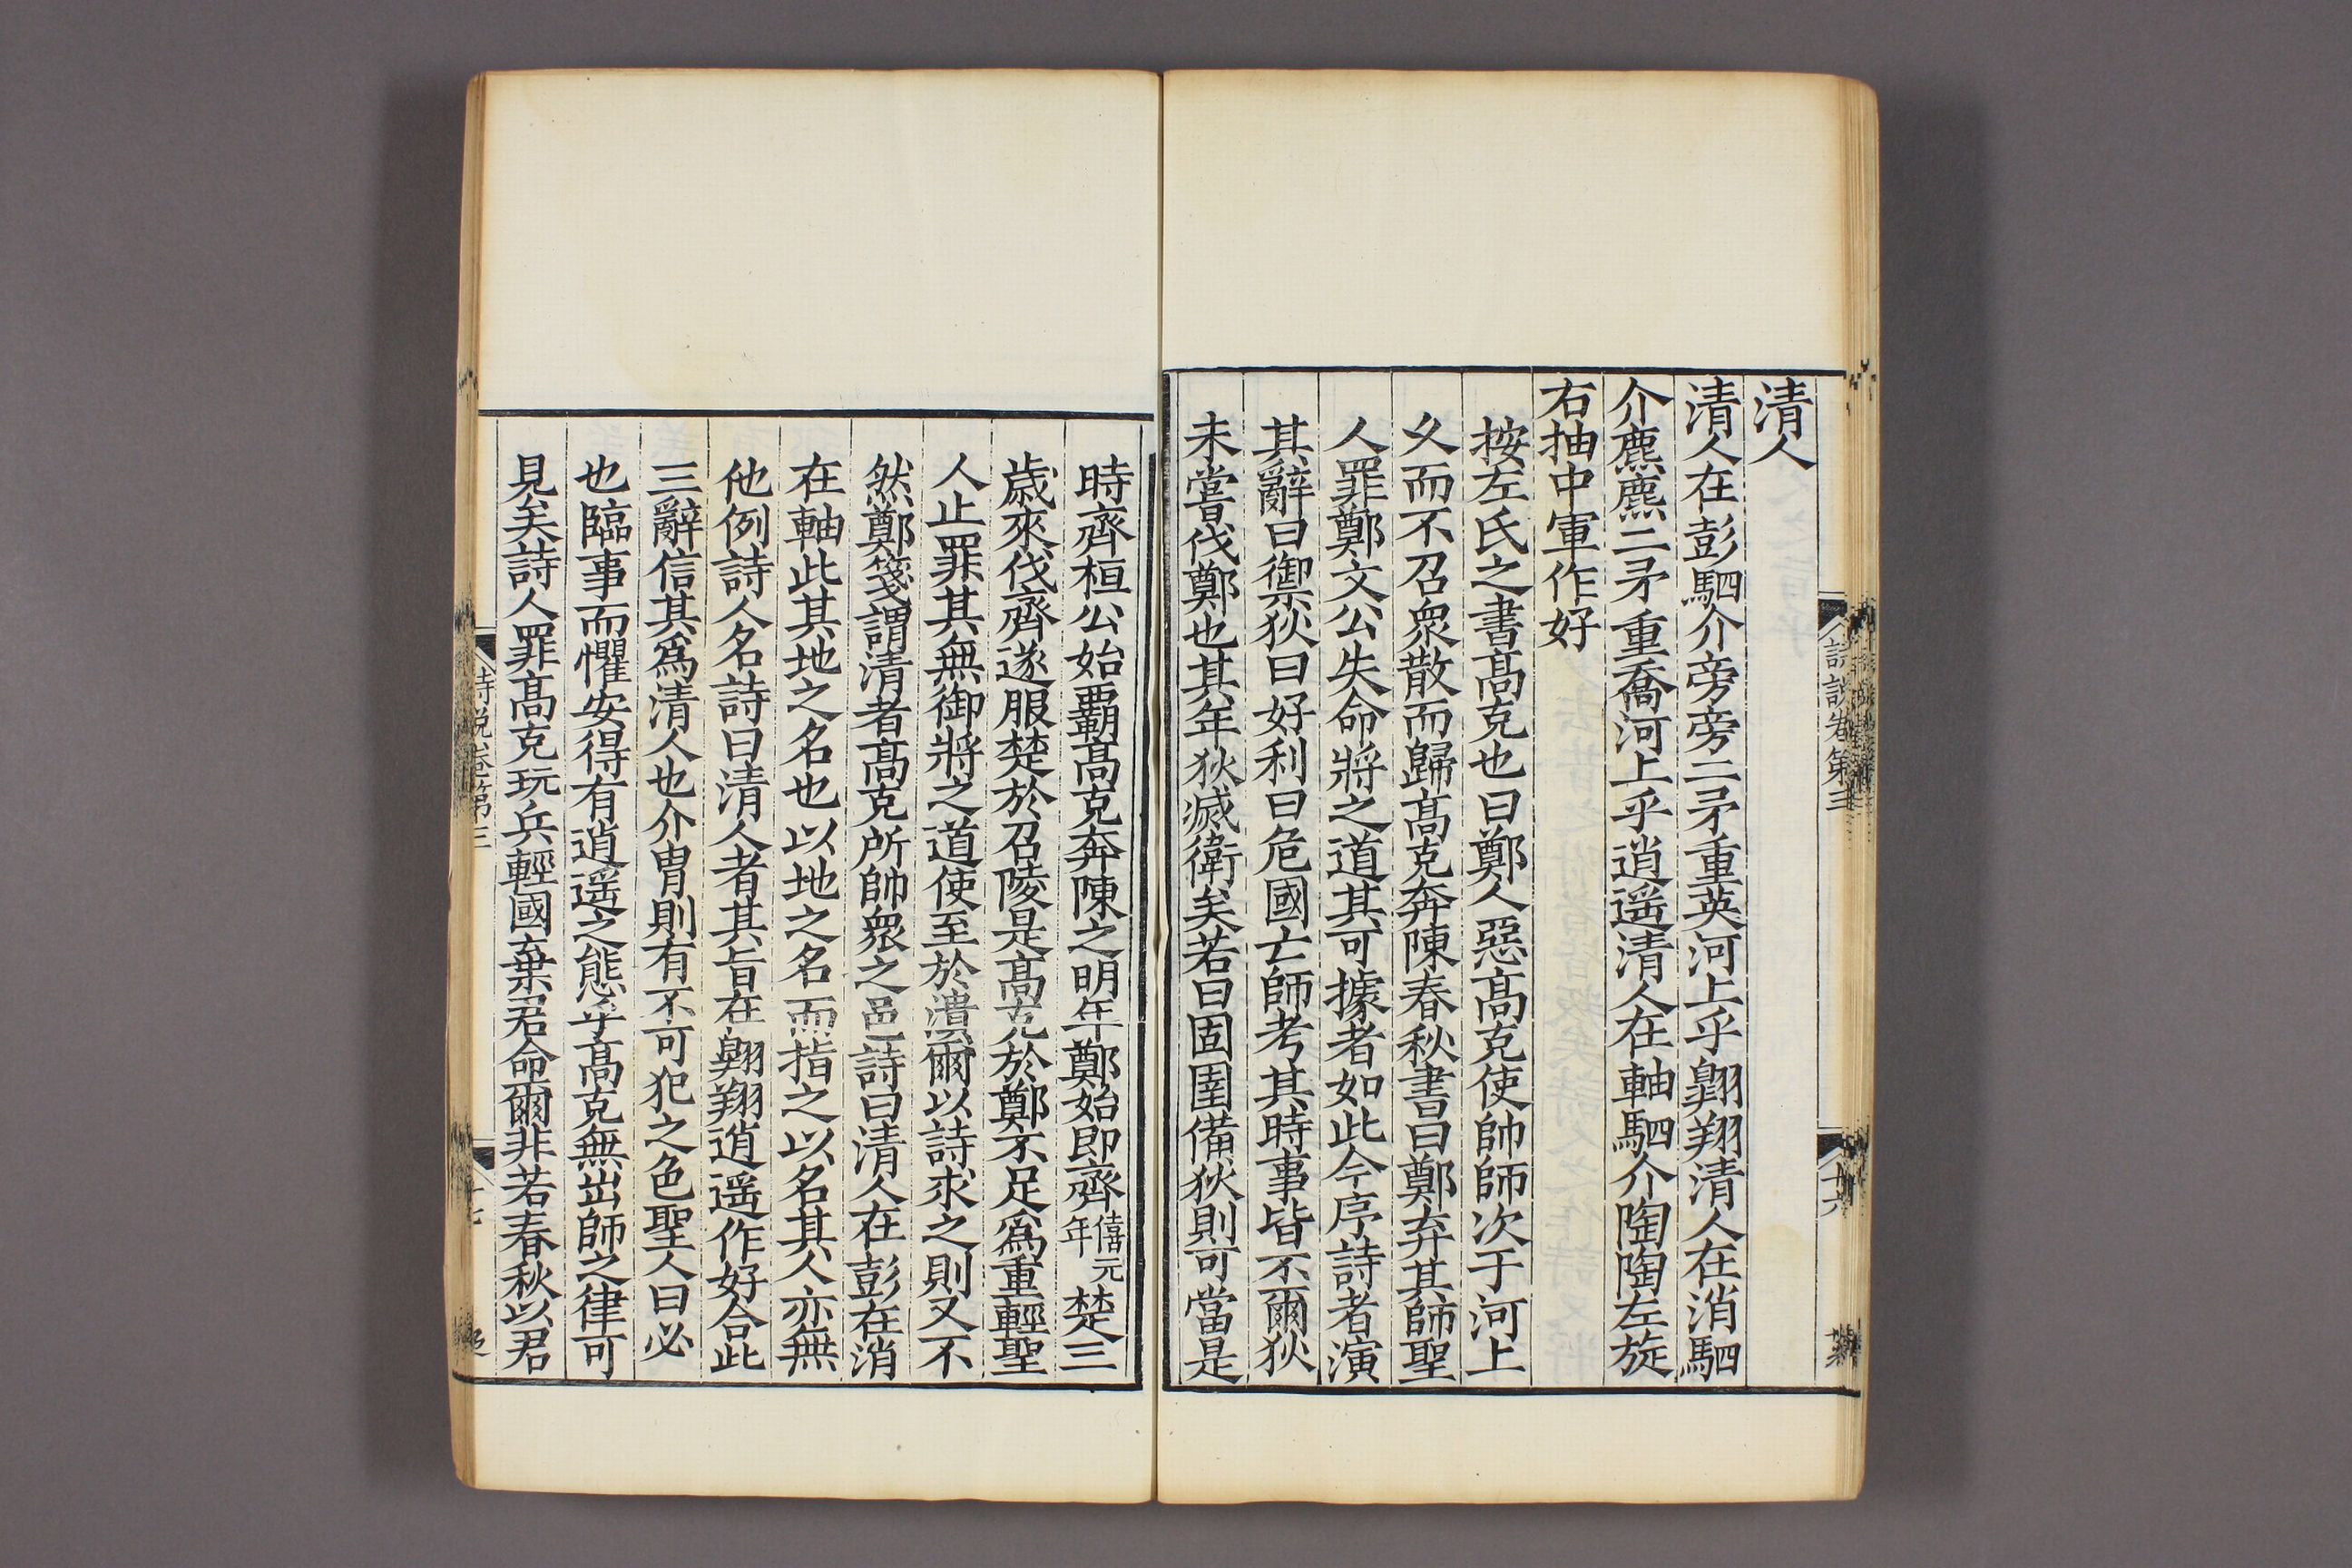 清人
清人在彭駟介旁旁二矛重英河上乎翱翔清人在消駟
介麃麃二矛重喬河上乎逍遥清人在軸駟介陶陶左旋
右抽中軍作好
按左氏之書髙克也曰鄭人惡髙克使帥師次于河上
乆而不召衆散而歸髙克奔陳春秋書曰鄭弃其師聖
人罪鄭文公失命將之道其可據者如此今序詩者演
其辭曰禦狄曰好利曰危國亡師考其時事皆不爾狄
未嘗伐鄭也其年狄滅衛矣若曰固圉備狄則可當是
詩説卷第三
十六
時齊桓公始覇髙克奔陳之明年鄭始即齊僖元年楚三
歳來伐齊遂服楚於召陵是髙克於鄭不足爲重輕聖
人止罪其無御將之道使至於潰爾以詩求之則又不
然鄭箋謂清者髙克所帥衆之邑詩曰清人在彭在消
在軸此其地之名也以地之名而指之以名其人亦無
他例詩人名詩曰清人者其旨在翱翔逍遥作好合此
三辭信其爲清人也介胄則有不可犯之色聖人曰必
也臨事而懼安得有逍遥之態乎髙克無出師之律可
見矣詩人罪髙克玩兵輕國棄君命爾非若春秋以君
詩説卷第三
十七